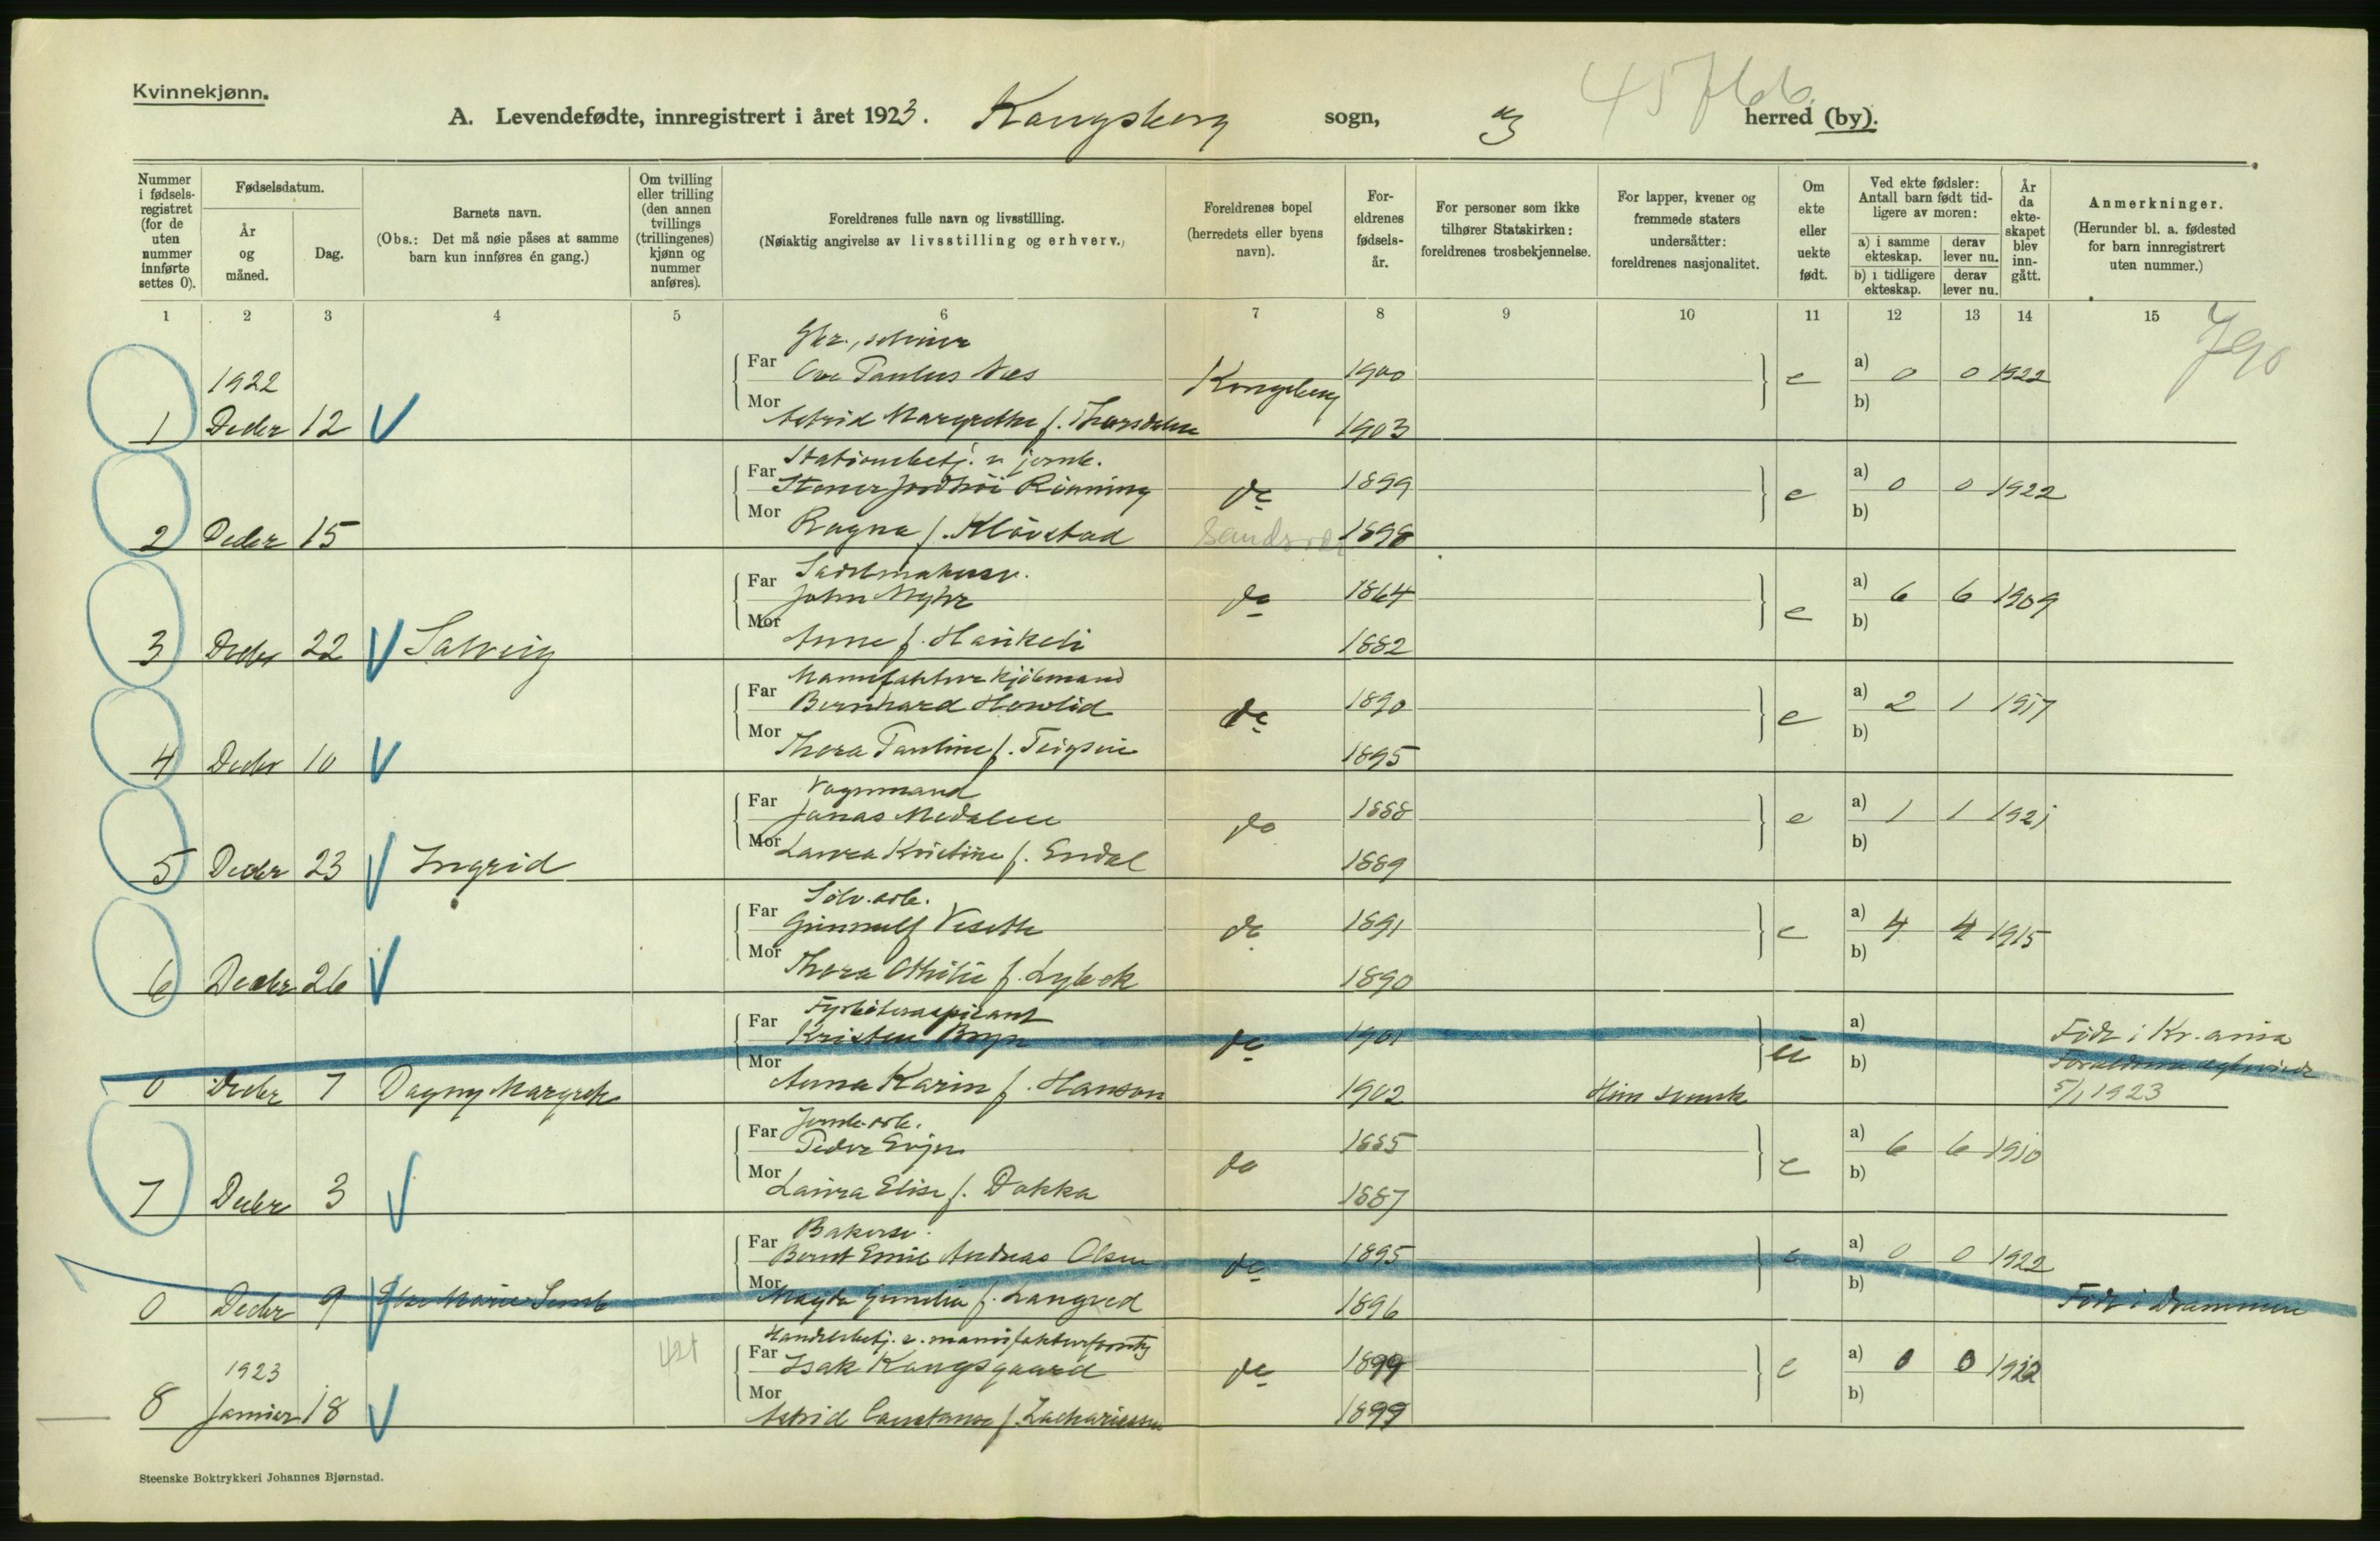 Kvinnekjønn.
A. Levendefødte, innregistrert i året 1923. Kongsberg sogn, herred (by).
Nummer i fødselsregistret (for de uten nummer innførte settes 0).
Fødselsdatum.
År og måned.
Dag.
Barnets navn.
(Obs.: Det må nøie påses at samme barn kun innføres én gang.)
Om tvilling eller trilling (den annen tvillings (trillingenes) kjønn og nummer anføres).
Foreldrenes fulle navn og livsstilling.
(Nøiaktig angivelse av livsstilling og erhverv.)
Foreldrenes bopel (herredets eller byens navn).
Foreldrenes fødselsår.
For personer som ikke tilhører Statskirken: foreldrenes trosbekjennelse.
For lapper, kvener og fremmede staters undersåtter: foreldrenes nasjonalitet.
Om ekte eller uekte født.
Ved ekte fødsler: Antall barn født tidligere av moren:
a) i samme ekteskap. derav lever nu.
b) i tidligere ekteskap. derav lever nu.
År da ekteskapet blev inngått.
Anmerkninger.
(Herunder bl. a. fødested for barn innregistrert uten nummer.)
1 2 3 4 5 6 7 8 9 10 11 12 13 14 15
1922
Far Ove Paulus Næs Kongsberg 1900 e a) 0 0 1922
1 Decbr 12 V Mor Astrid Margrethe f. Thorsdalen 1903 b)
Stationsbetj. v. jernb.
Far Rinning do 1899 e a) 0 0 1922
2 Decbr 15 Mor Ragna f. Klåvstad Sandsvær 1898 b)
Sadelmakersv.
Far John Myhr do 1864 e a) 6 6 1909
3 Decbr 22 V Solveig Mor Anne f. Haukeli 1882 b)
Manufakturkjøbmand
Far Bernhard Hovlid do 1890 e a) 2 1 1917
4 Decbr 10 V Mor Thora Pauline f. Teigen 1895 b)
Vognmand
Far Jonas Medalen do 1888 e a) 1 1 1921
5 Decbr 23 V Ingrid Mor Laura Kristine f. Endal 1889 b)
Sølv.arb.
Far Gunnulf Veseth do 1891 e a) 4 4 1915
6 Decbr 26 V Mor Thora Othilie f. Lybeck 1890 b)
Fyrbøteraspirant
Far Kristen Bryn do 1901 u a) Født i Kr.ania
0 Decbr 7 Dagny Margrete Mor Anna Karin f. Hanson 1902 Hun svensk b) Foreldrene egteviede 5/1 1923
Jernb.arb.
Far Peder Evju do 1885 e a) 6 6 1910
7 Decbr 3 V Mor Laura Elise f. Dokka 1887 b)
Bakersv.
Far Bernt Emil Andreas Olsen do 1895 e a) 0 0 1922
0 Decbr 9 V Else Marie Semb Mor Magda Gunelie f. Langved 1896 b) Født i Drammen
Handelsbetj. v. manufakturforretg
1923
421
Far Isak Kongsgaard do 1899 e a) 0 0 1922
8 Januar 18 V Mor Astrid Constanse f. Zachariassen 1899 b)
Steenske Boktrykkeri Johannes Bjørnstad.